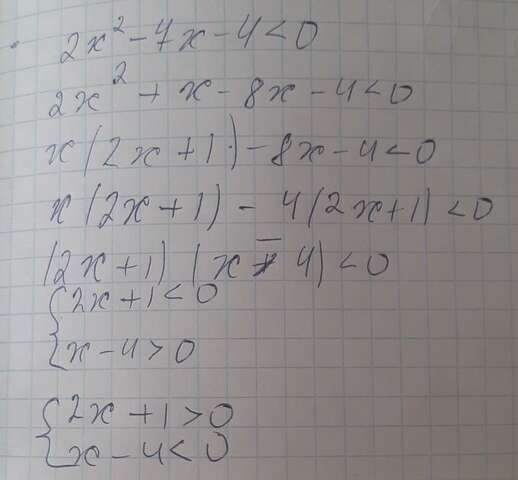 2x² - 7x - 4 < 0
2x² + x - 8x - 4 < 0
x(2x + 1) - 8x - 4 < 0
x(2x + 1) - 4(2x + 1) < 0
(2x + 1)(x - 4) < 0
{2x + 1 < 0
{x - 4 > 0
{2x + 1 > 0
{x - 4 < 0